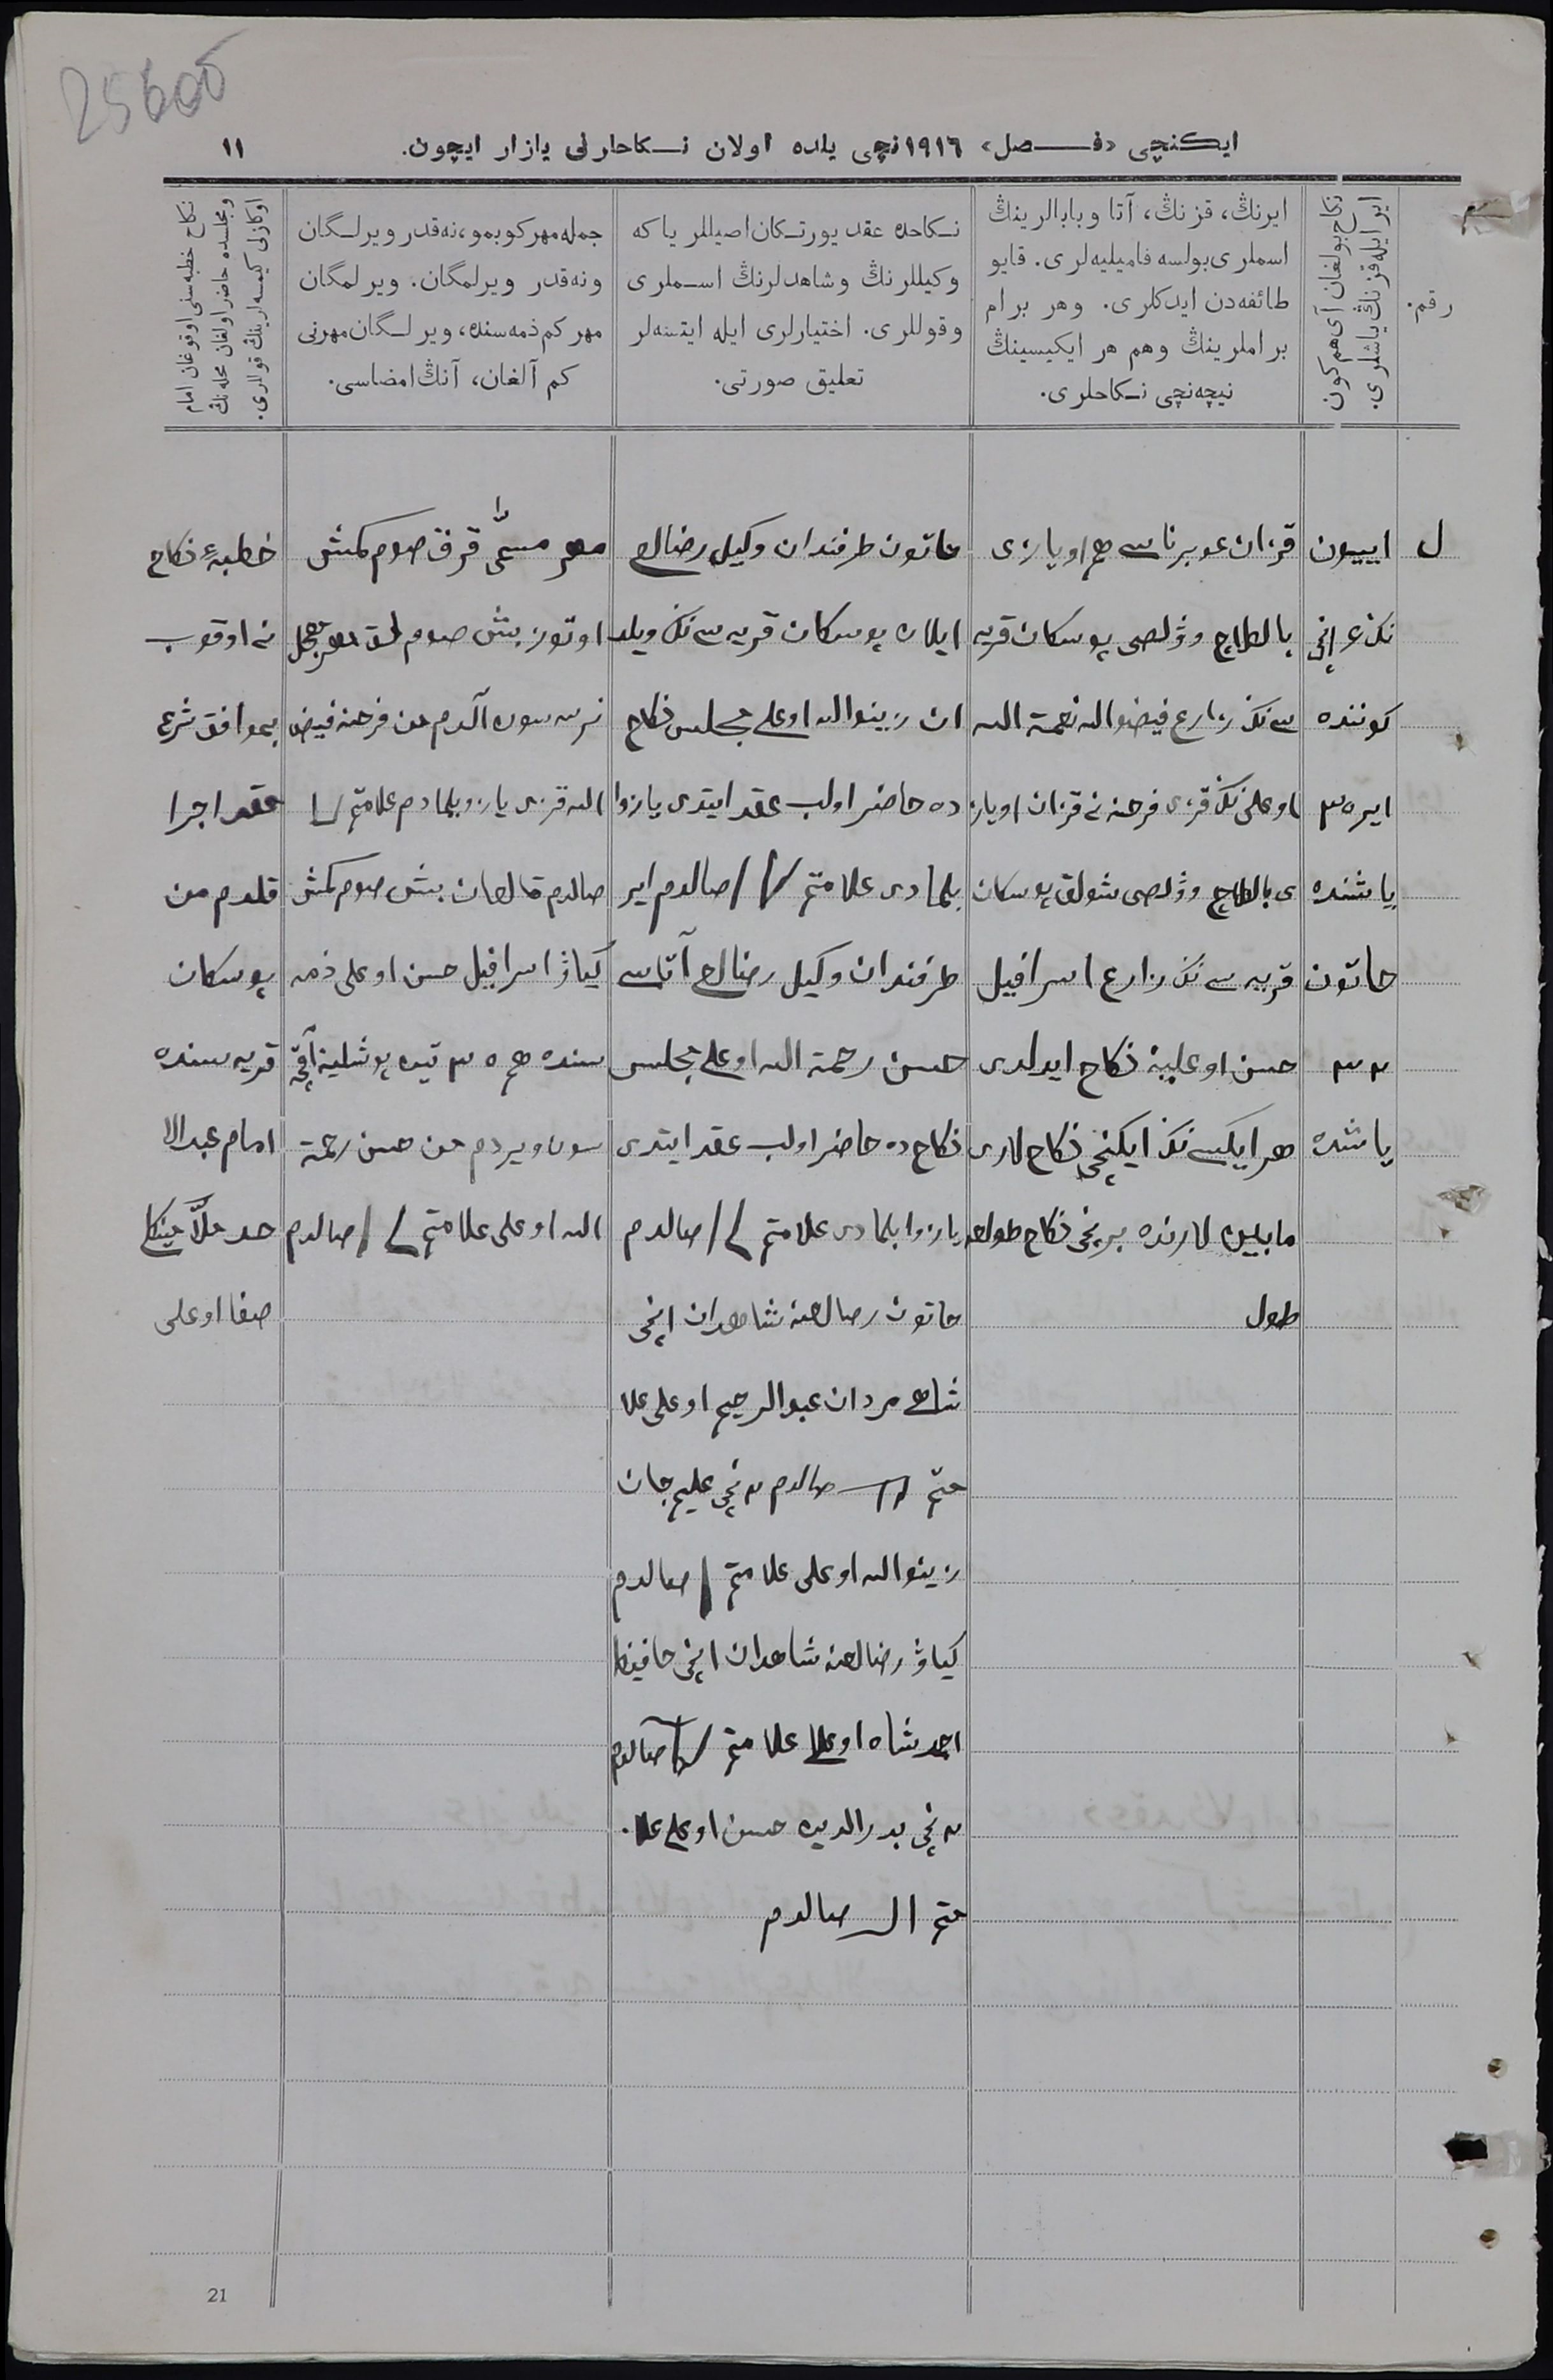 25600
ایكنچی «فـصل» ۱۹۱٦نچی یلده اولان نـكاحارنی یازار ایچون.
۱۱
رقم.
نكاح بولغان آی هم كون
ایر ایله قزنڭ یاشلری.
ایرنڭ، قزنڭ، آتا و بابالرینڭ
اسملری بولسه فامیلیه‌لری. قایو
طائفه‌دن ایدكلری. وهر برام
براملرینڭ وهم هر ایكیسینڭ
نیچه‌نچی نـكاحلری.
نـكاحده عقد یورتـكان اصیللر یا كه
وكیللرنڭ وشاهدلرنڭ اسـملری
وقوللری. اختیارلری ایله ایتسه‌لر
تعلیق صورتی.
جمله مهر كوبمو، نه‌قدر ویرلـگان
ونه‌قدر ویرلمگان. ویرلمگان
مهر كم ذمه‌سنده، ویرلـگان مهرنی
كم آلغان، آنڭ امضاسی.
نكاح خطبه‌سنی اوقوغان امام
ومجلسده حاضر اولغان محله‌نڭ
اوكازلی كیمسه‌لرینڭ قوللری.
ل
ایییون
نڭ
كوننده
ایر ۳۵
یاشنده
خاتون
۳۳
یاشده
قزان غوبرناسی هم اویازی
بالطاچ وۋلصی پوسكان قریه
سی نڭ زارع فیض الله نعمة الله
اوغلی نڭ قزی فرحنه نی قزان اویاز
ی بالطاچ وۋلصی شولق پوسكان
قریه سی نڭ زارع اسرافیل
حسن اوغلینه نكاح ایدلدی
هر ایكیسی نڭ ایكنچی نكاح لاری
مابین لارنده برنچی نكاح طولغه
طول
خاتون طرفندان وكیل رضالغی
ایلان پوسكان قریه سی نڭ ویلد
ان زین الله اوغلی مجلس نكاح
ده حاضر اولب عقد ایتدی یازوا
بلمادی علامتم صالدم ایر
طرفندان وكیل رضالغی آتاسی
حسن رحمة الله اوغلی مجلس
نكاح ده حاضر اولب عقد ایتدی
یازوا بلمادی علامتم صالدم
خاتون رضالغنه شاهدان انچی
شاهی مردان عبد الرحیم اوغلی علا
متم صالدم ۲ نچی علیم جان
زین الله اوغلی علامتم صالدم
كیاو رضالغنه شاهدان انچی حافیظ
احمد شاه اوغلی علامتم صالدم
۲ نچی بدر الدین حسن اوغلی علا
متم صالدم
مهر مسمّی قرق صوم كمش
اوتوز بش صوم لق مهر معجل
نرسه سون آلدم من فرحنه فیض
الله قزی یازو بلمادم علامتم
صالدم قالغان بش صوم كمش
كیاو اسرافیل حسن اوغلی ذمه
سنده هم ۳۵ تین پوشلینه آقچه
سون ویردم من حسن رحمة
الله اوغلی علامتم صالدم
خطبهٔ نكاح
نی اوقوب
بموافق شرع
عقد اجرا
قلدم من
پوسكان
قریه سنده
امام عبد الا
حد ملّا
صفا اوغلی
21